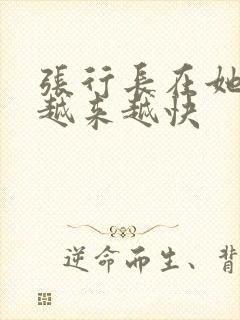 張行長在她
越来越快
逆命而生、背